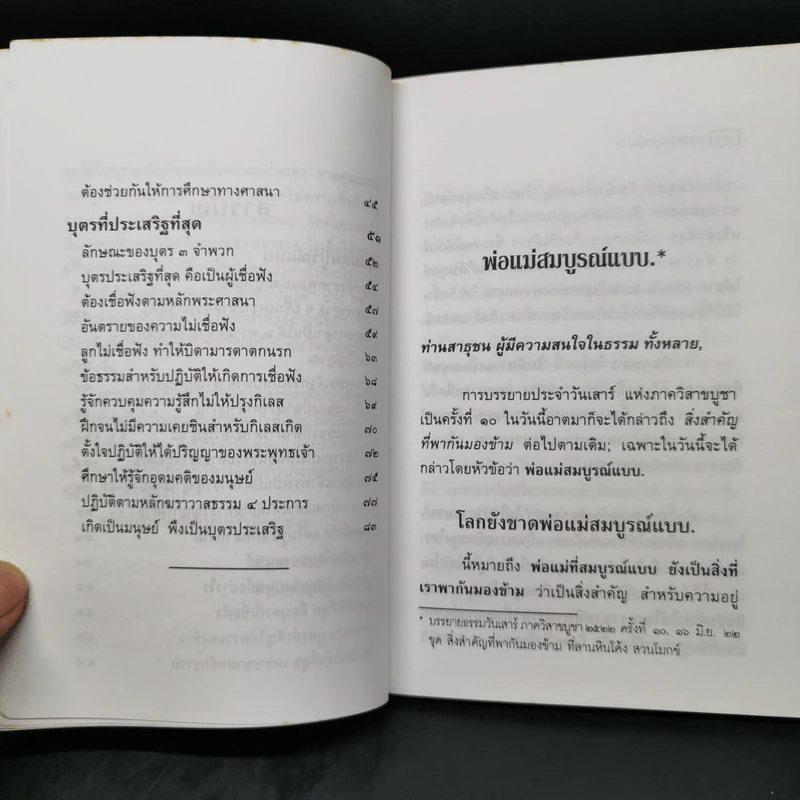 ต้องช่วยกันให้การศึกษาทางศาสนา ๔๕
บุตรที่ประเสริฐที่สุด ๕๑
ลักษณะของบุตร ๓ จำพวก ๕๒
บุตรประเสริฐที่สุด คือเป็นผู้เชื่อฟัง ๕๔
ต้องเชื่อฟังตามหลักพระศาสนา ๕๗
อันตรายของความไม่เชื่อฟัง ๕๙
ลูกไม่เชื่อฟัง ทำให้บิดามารดาตกนรก ๖๓
ข้อธรรมสำหรับปฏิบัติให้เกิดการเชื่อฟัง ๖๘
รู้จักควบคุมความรู้สึกไม่ให้ปรุงกิเลส ๖๙
ฝึกจนไม่มีความเคยชินสำหรับกิเลสเกิด ๗๐
ตั้งใจปฏิบัติให้ได้ปริญญาของพระพุทธเจ้า ๗๒
ศึกษาให้รู้จักอุดมคติของมนุษย์ ๗๕
ปฏิบัติตามหลักฆราวาสธรรม ๔ ประการ ๗๗
เกิดเป็นมนุษย์ พึงเป็นบุตรประเสริฐ ๘๓
พ่อแม่สมบูรณ์แบบ.*
ท่านสาธุชน ผู้มีความสนใจในธรรม ทั้งหลาย,
การบรรยายประจำวันเสาร์ แห่งภาควิสาขบูชา
เป็นครั้งที่ ๑๐ ในวันนี้อาตมาก็จะได้กล่าวถึง สิ่งสำคัญ
ที่พากันมองข้าม ต่อไปตามเดิม; เฉพาะในวันนี้จะได้
กล่าวโดยหัวข้อว่า พ่อแม่สมบูรณ์แบบ.
โลกยังขาดพ่อแม่สมบูรณ์แบบ.
นี้หมายถึง พ่อแม่ที่สมบูรณ์แบบ ยังเป็นสิ่งที่
เราพากันมองข้าม ว่าเป็นสิ่งสำคัญ สำหรับความอยู่
* บรรยายธรรมวันเสาร์ ภาควิสาขบูชา ๒๕๒๒ ครั้งที่ ๑๐, ๑๖ มิ.ย. ๒๒
ชุด สิ่งสำคัญที่พากันมองข้าม ที่ลานหินโค้ง สวนโมกข์